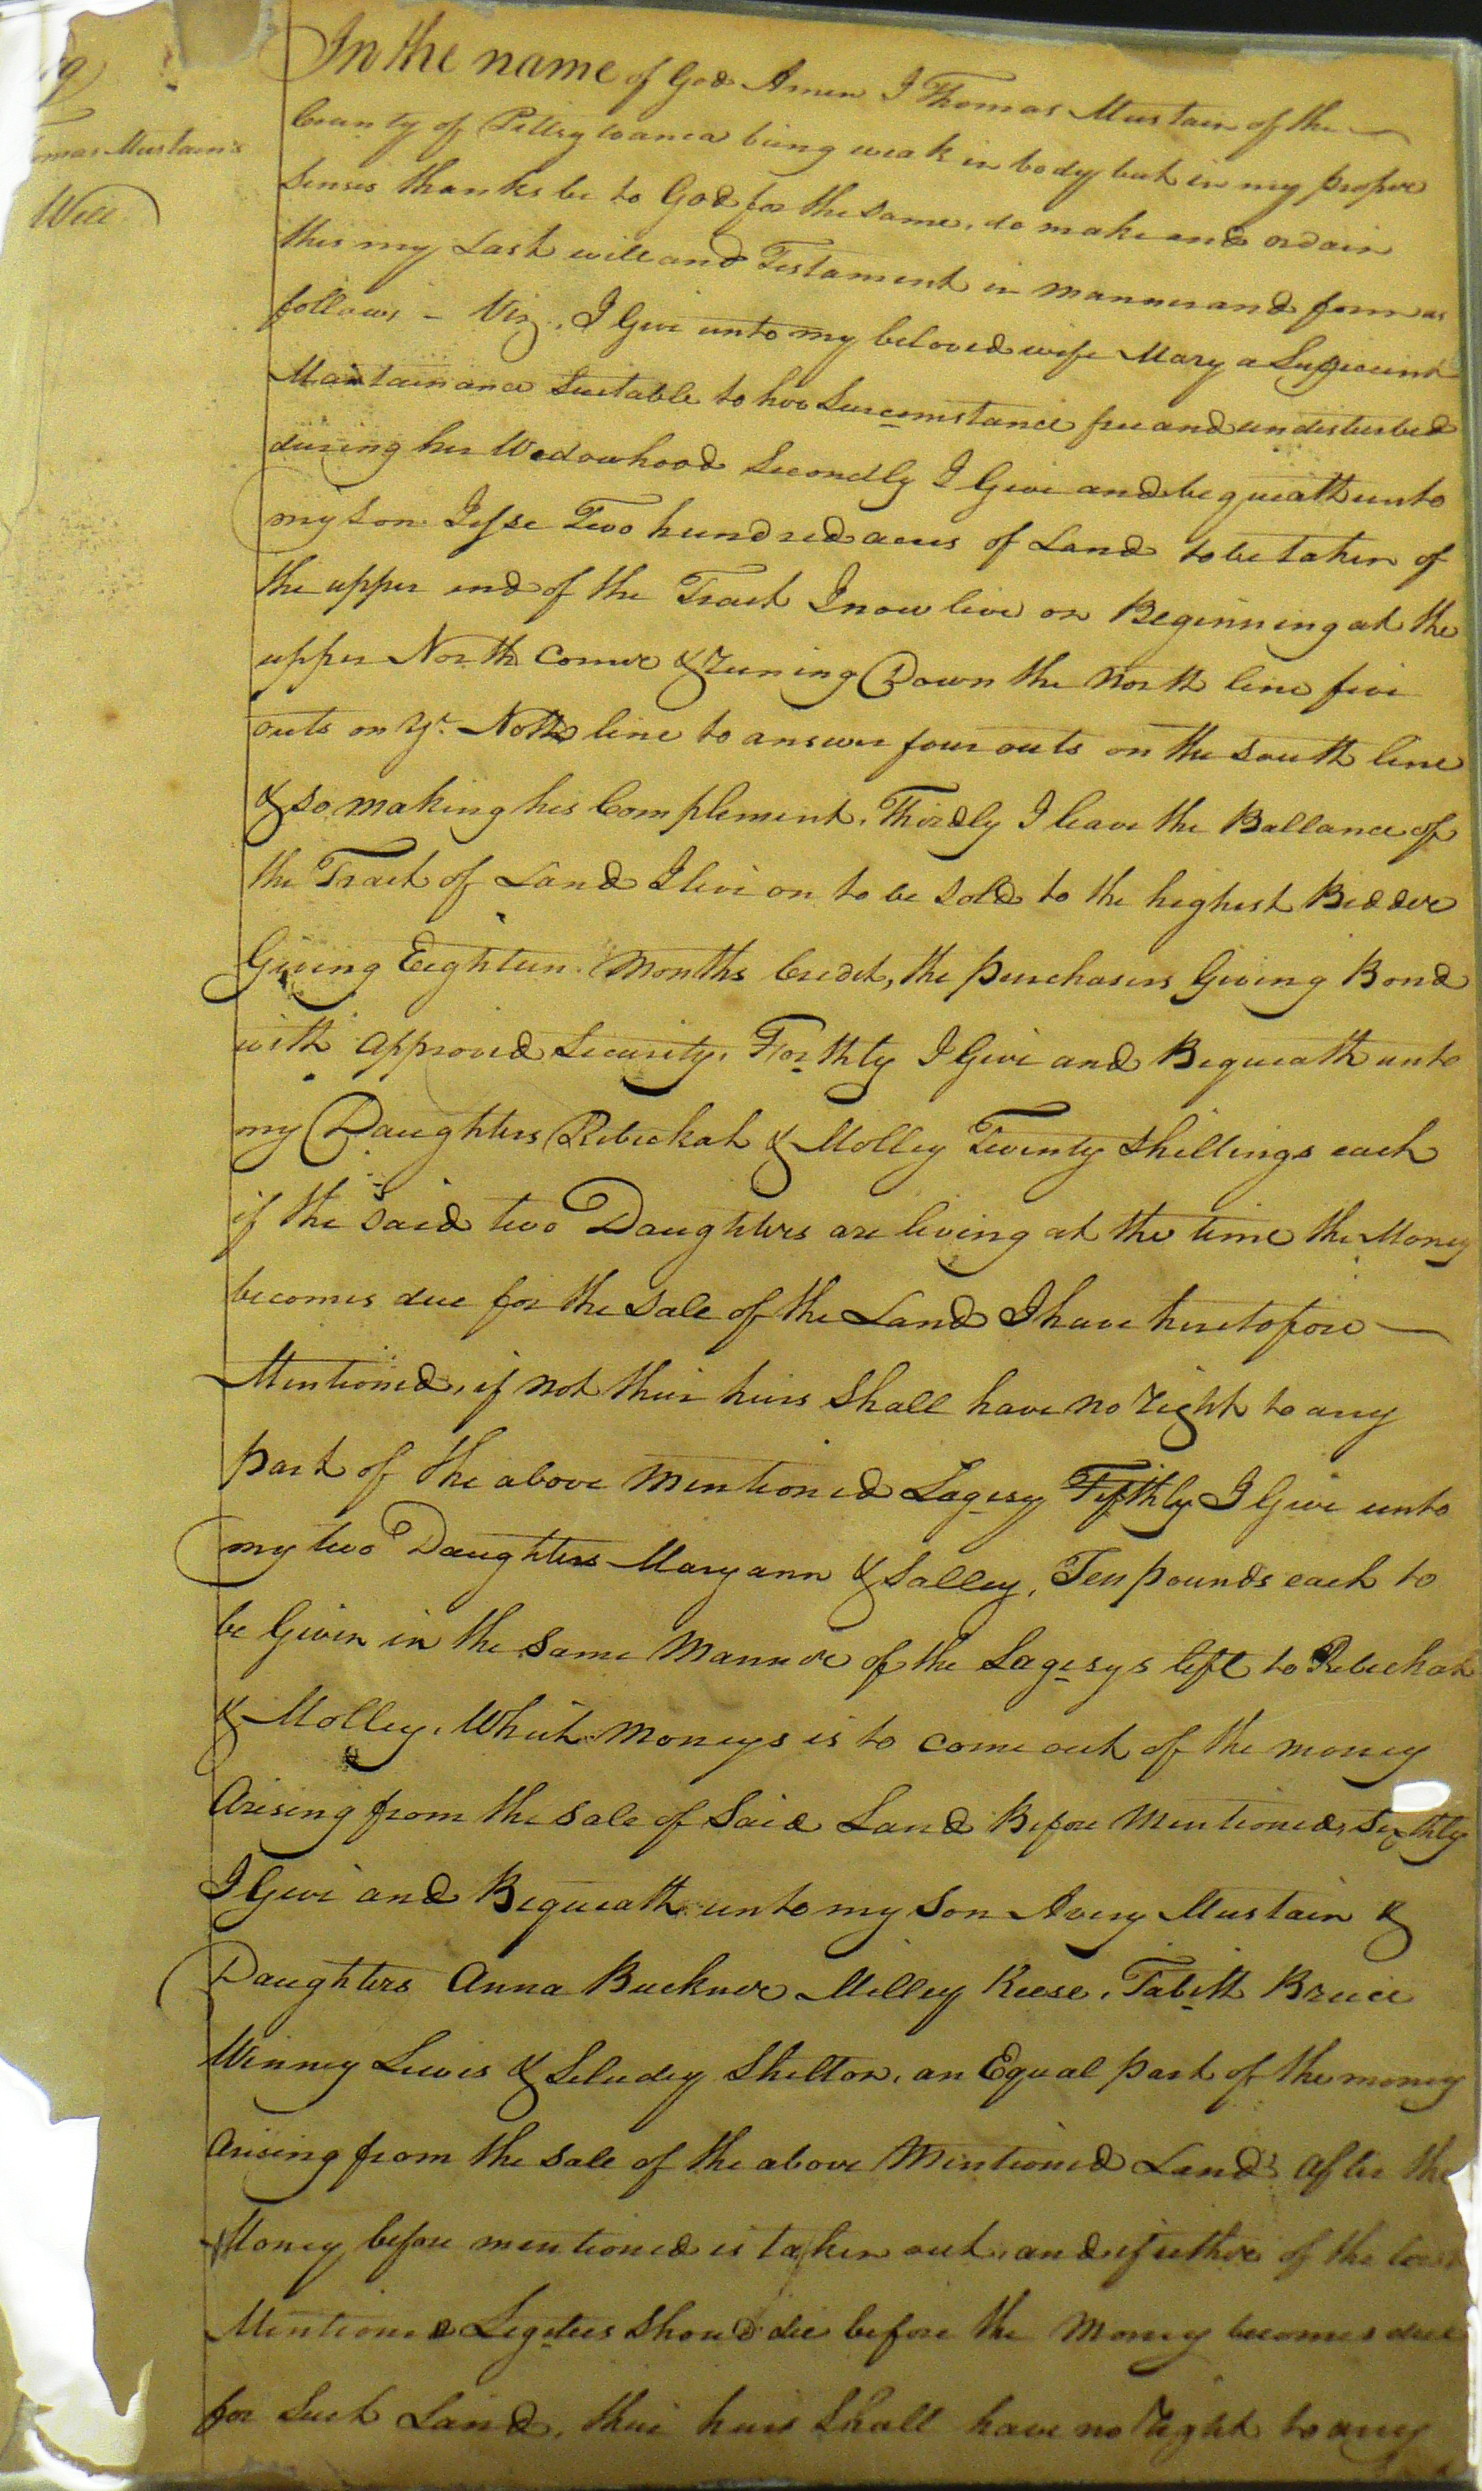 Thomas Mustain's
Will
In the name of God Amen I Thomas Mustain of the
County of Pittsylvania being weak in body but in my proper
Senses thanks be to God for the same, do make and ordain
this my Last will and Testament in manner and form as
follows - Viz, I Give unto my beloved wife Mary a Sufficient
Maintainance Suitable to her Surcumstance free and undisturbed
during her Wedowhood Secondly I Give and bequeath unto
my son Jesse Two hundred acres of Land to be taken of
the upper end of the Tract I now live on Beginning at the
upper North Corner & runing Down the North line five
outs on ye. Noth line to answer four outs on the South line
& so making his Complement. Thirdly I leave the Ballance of
the Tract of Land I live on to be sold to the highest Bidder
Giving Eighteen Months Credit, the purchasers Giving Bond
with approved Security. Forthly I Give and Bequeath unto
my Daughters Rebeckah & Molley Twenty Shillings each
if the said two Daughters are living at the time the Money
becomes due for the Sale of the Land I have heretofore
Mentioned, if not their heirs Shall have no right to any
part of the above mentioned Lagesy Fifthly I Give unto
my two Daughters Maryann & Salley, Ten pounds each to
be Given in the Same Manner of the Lagesys left to Rebeckah
& Molley. Which Moneys is to come out of the money
Arising from the sale of Said Land Before Mentioned, Sixthly
I Give and Bequeath unto my Son Avery Mustain &
Daughters Anna Buckner Milley Reese, Tabith Bruce
Winney Lewis & Seludey Shelton, an Equal part of the money
arising from the sale of the above Mentioned Land after the
Money before mentioned is taken out, and if either of the last
Mentioned Legetees Should die before the Money becomes due
for Such Land, their heirs Shall have no right to any